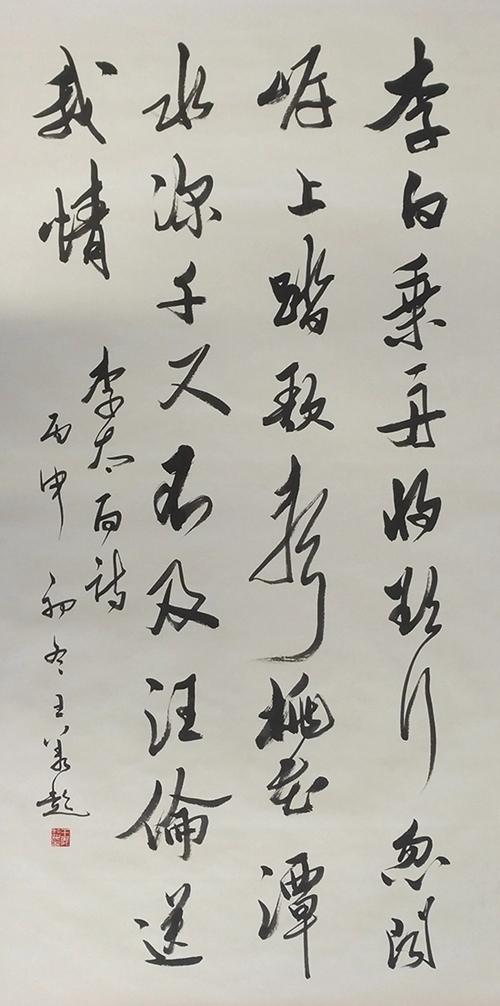 李白乘舟将欲行忽闻
岸上踏歌声桃花潭
水深千尺不及汪倫送
我情
李太白诗
丙申初冬王